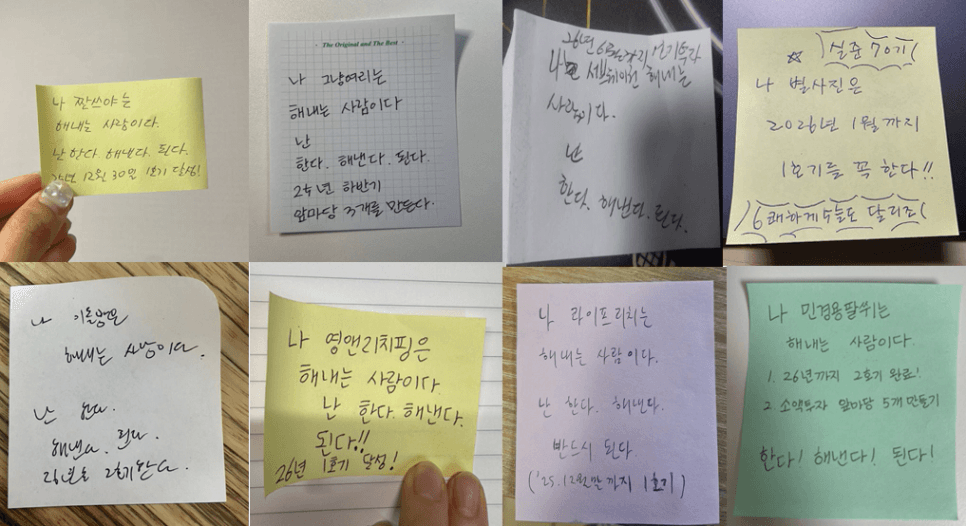 나 짤쓰야는
해내는 사람이다.
난 한다. 해낸다. 된다.
12월 30일 1호기 달성!
The Original and The Best
나 그냥여리는
해내는 사람이다
난
한다. 해낸다. 된다.
하반기
앞마당 3개를 만든다.
26년 6월
해내는
사람이다.
난
한다. 해낸다. 된다.
☆ 실준 70기
나 별사진은
2026년 1월까지
1호기를 꼭 한다!!
6쾌하게 5늘도 달리조
나
해내는 사람이다.
난 한다.
해낸다. 된다.
2호기 한다.
나 영앤리치핑은
해내는 사람이다.
난 한다. 해낸다.
된다!!
26년 1호기 달성!
나 라이프리치는
해내는 사람이다.
난 한다. 해낸다.
반드시 된다.
('25.12월말까지 1호기)
나 민경용팔쒸는
해내는 사람이다.
1. 26년까지 2호기 완료!
2. 소액투자 앞마당 5개 만들기
한다! 해낸다! 된다!